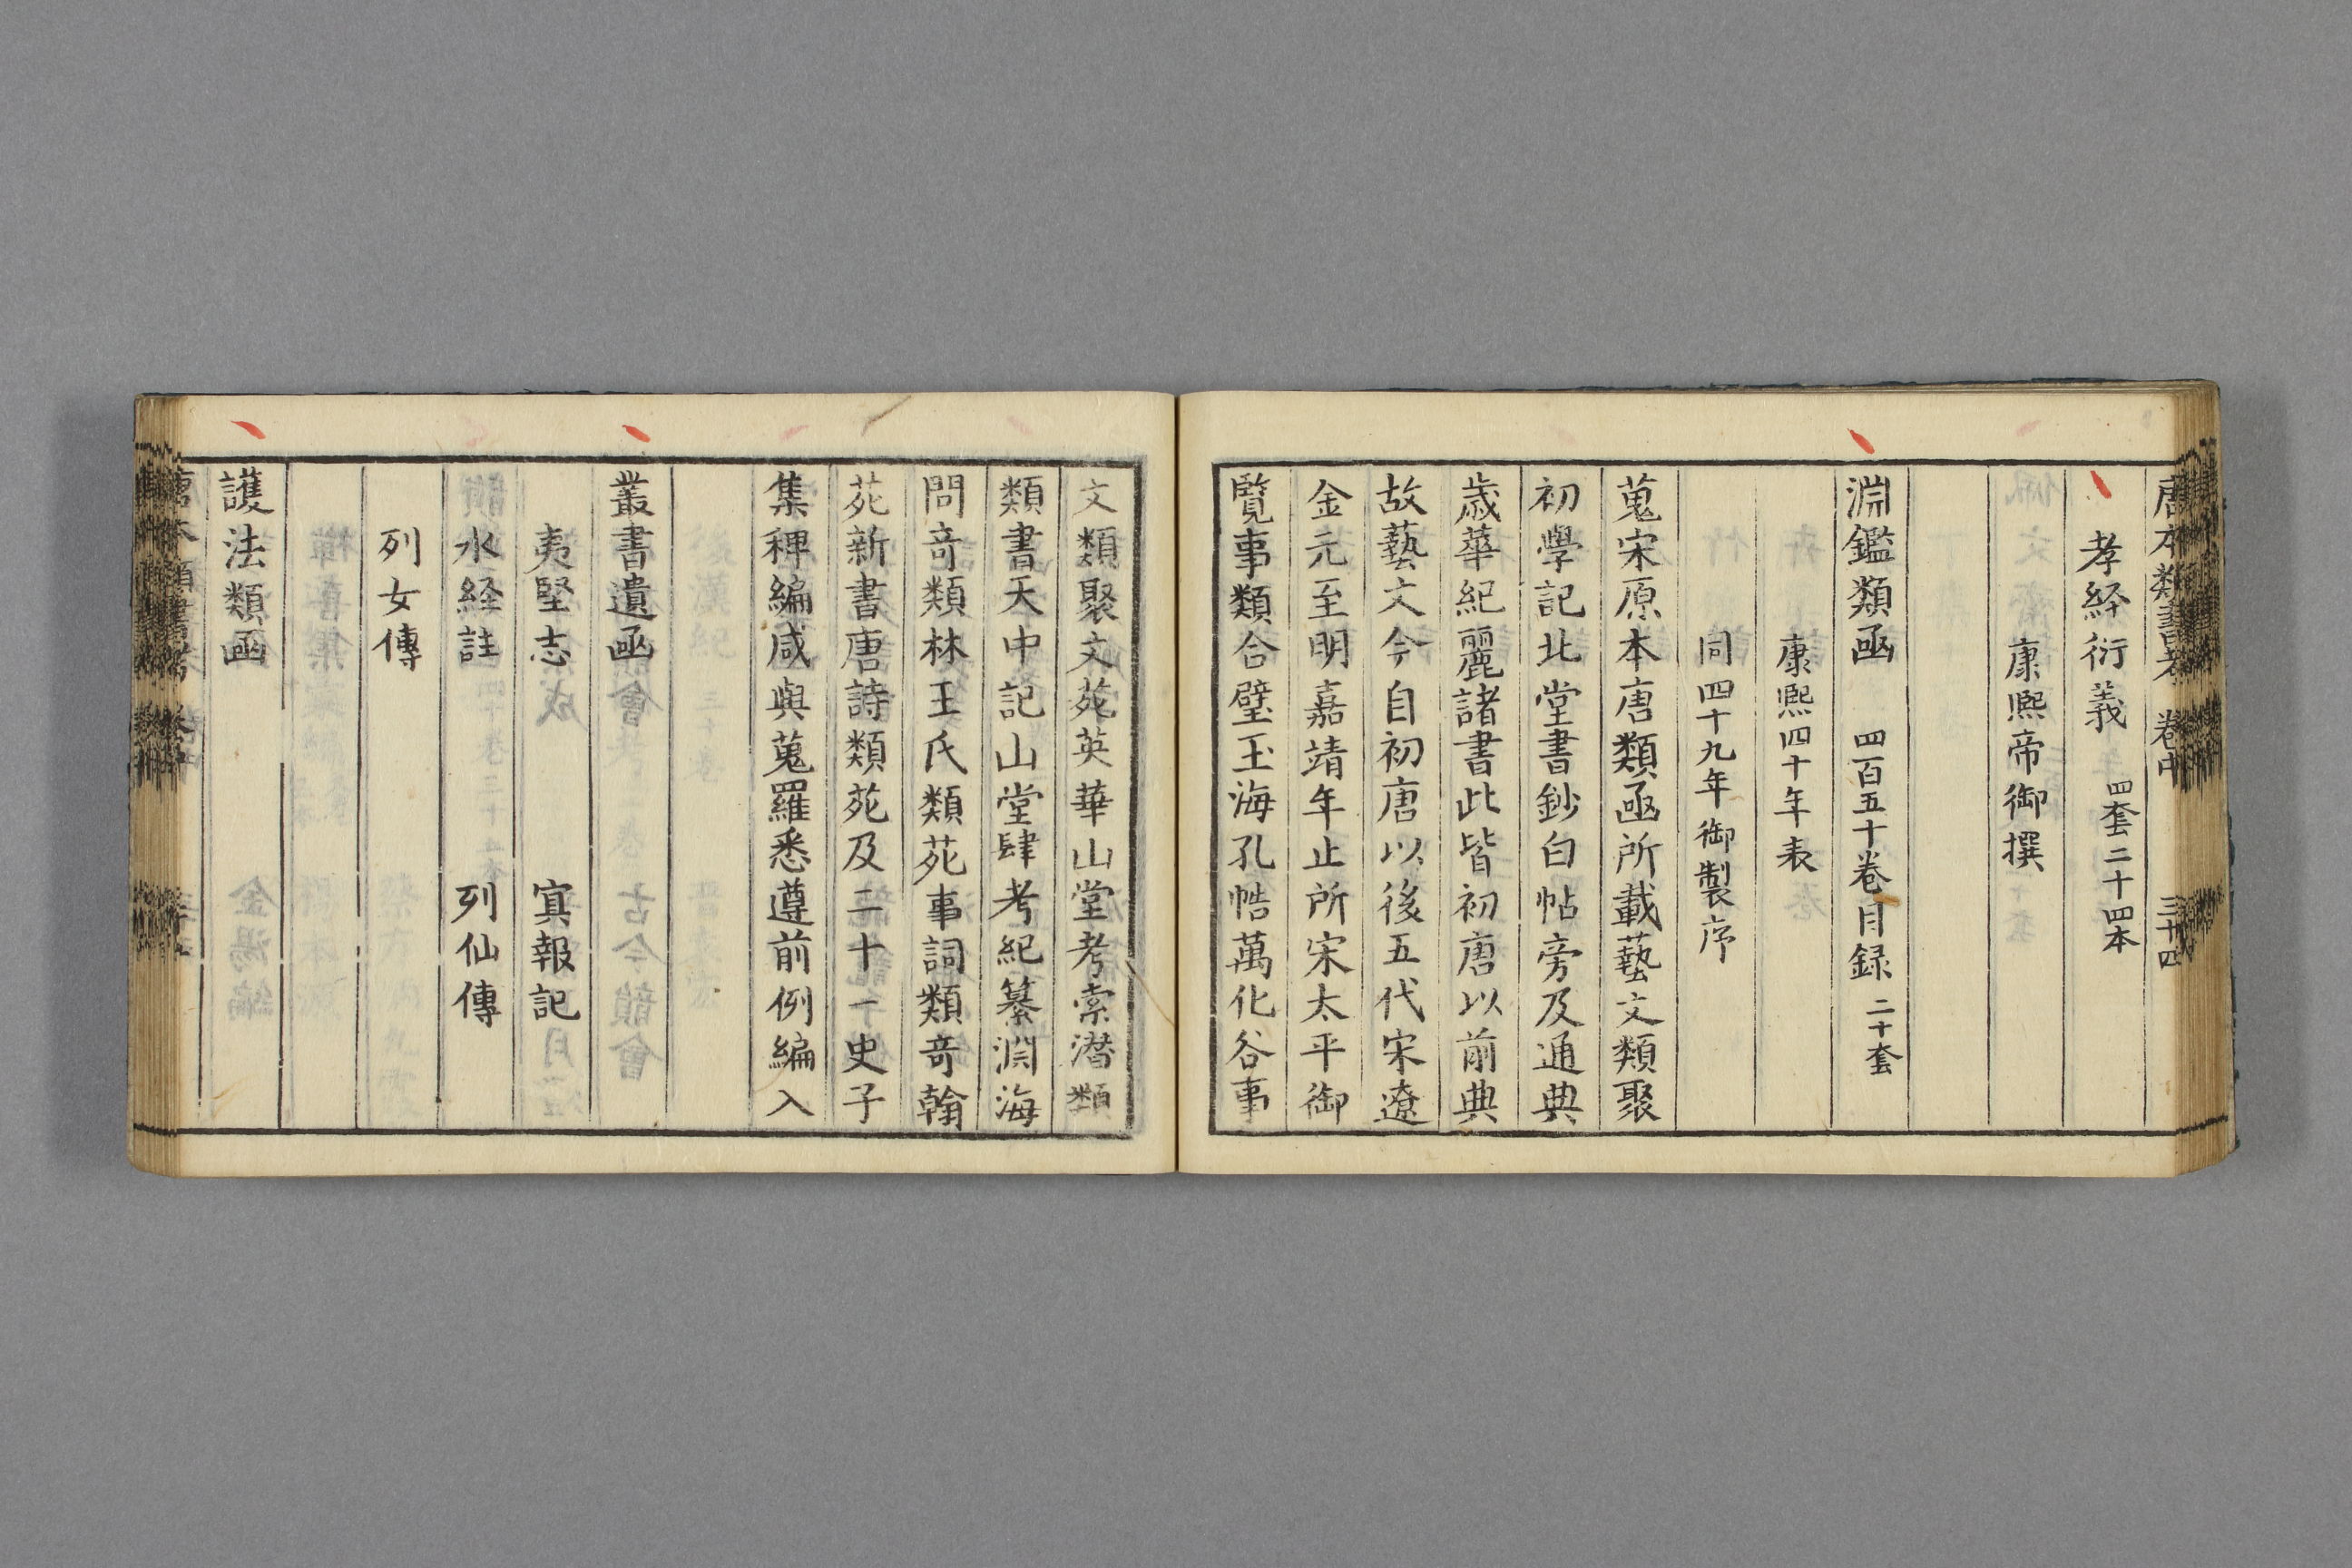 唐本類書考 卷中 三十四
孝経衍義 四套二十四本
康熙帝御撰
淵鑑類函 四百五十卷目録 二十套
康熙四十年表
同四十九年御製序
蒐宋原本唐類函所載藝文類聚
初學記北堂書鈔白帖旁及通典
歳華紀麗諸書此皆初唐以前典
故藝文今自初唐以後五代宋遼
金元至明嘉靖年止所宋太平御
覽事類合璧玉海孔帖萬化谷事
文類聚文苑英華山堂考索潜類
類書天中記山堂肆考紀纂淵海
問竒類林王氏類苑事詞類竒翰
苑新書唐詩類苑及二十一史子
集稗編咸與蒐羅悉遵前例編入
叢書遺函
夷堅志 寘報記
水経註 列仙傳
列女傳
護法類函
唐本類書考 卷中